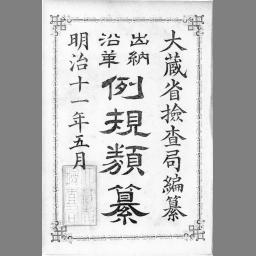 大蔵省撿査局編纂
出納
沿革
例規類纂
明治十一年五月